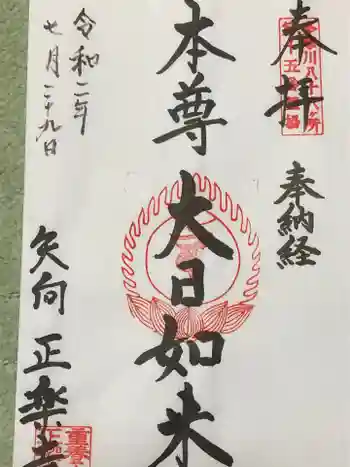 奉拝
奉納経
本尊 大日如来
矢向 正楽寺
令和二年
七月二十九日